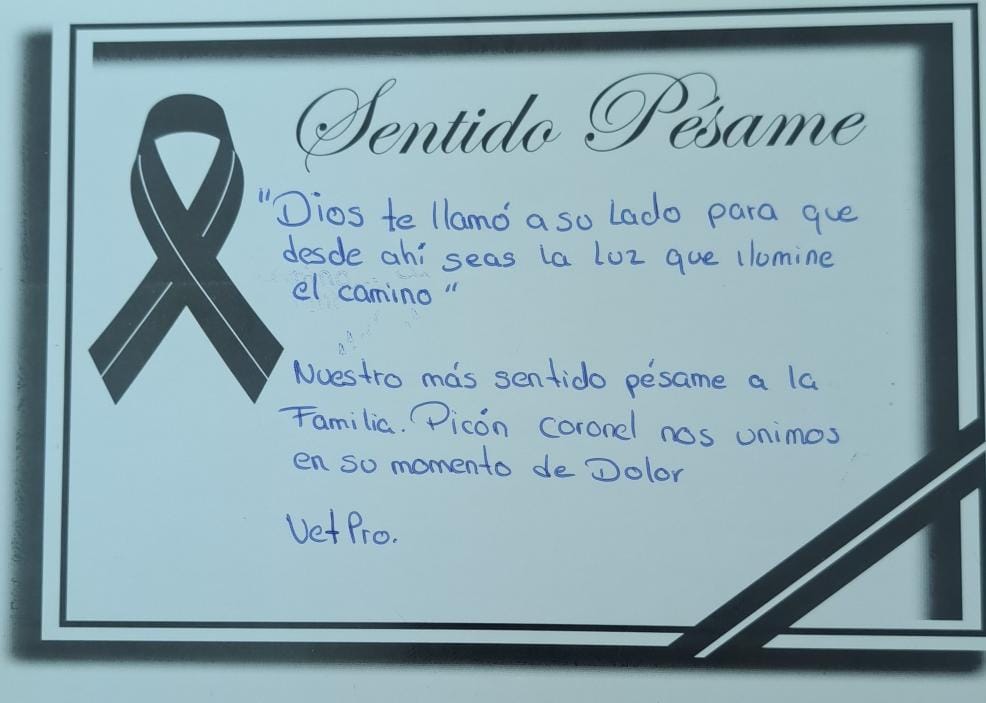 Sentido Pésame
"Dios te llamó a su Lado para que
desde ahí seas la luz que ilumine
el camino"
Nuestro más sentido pésame a la
Familia. Picón Coronel nos unimos
en su momento de Dolor
VetPro.